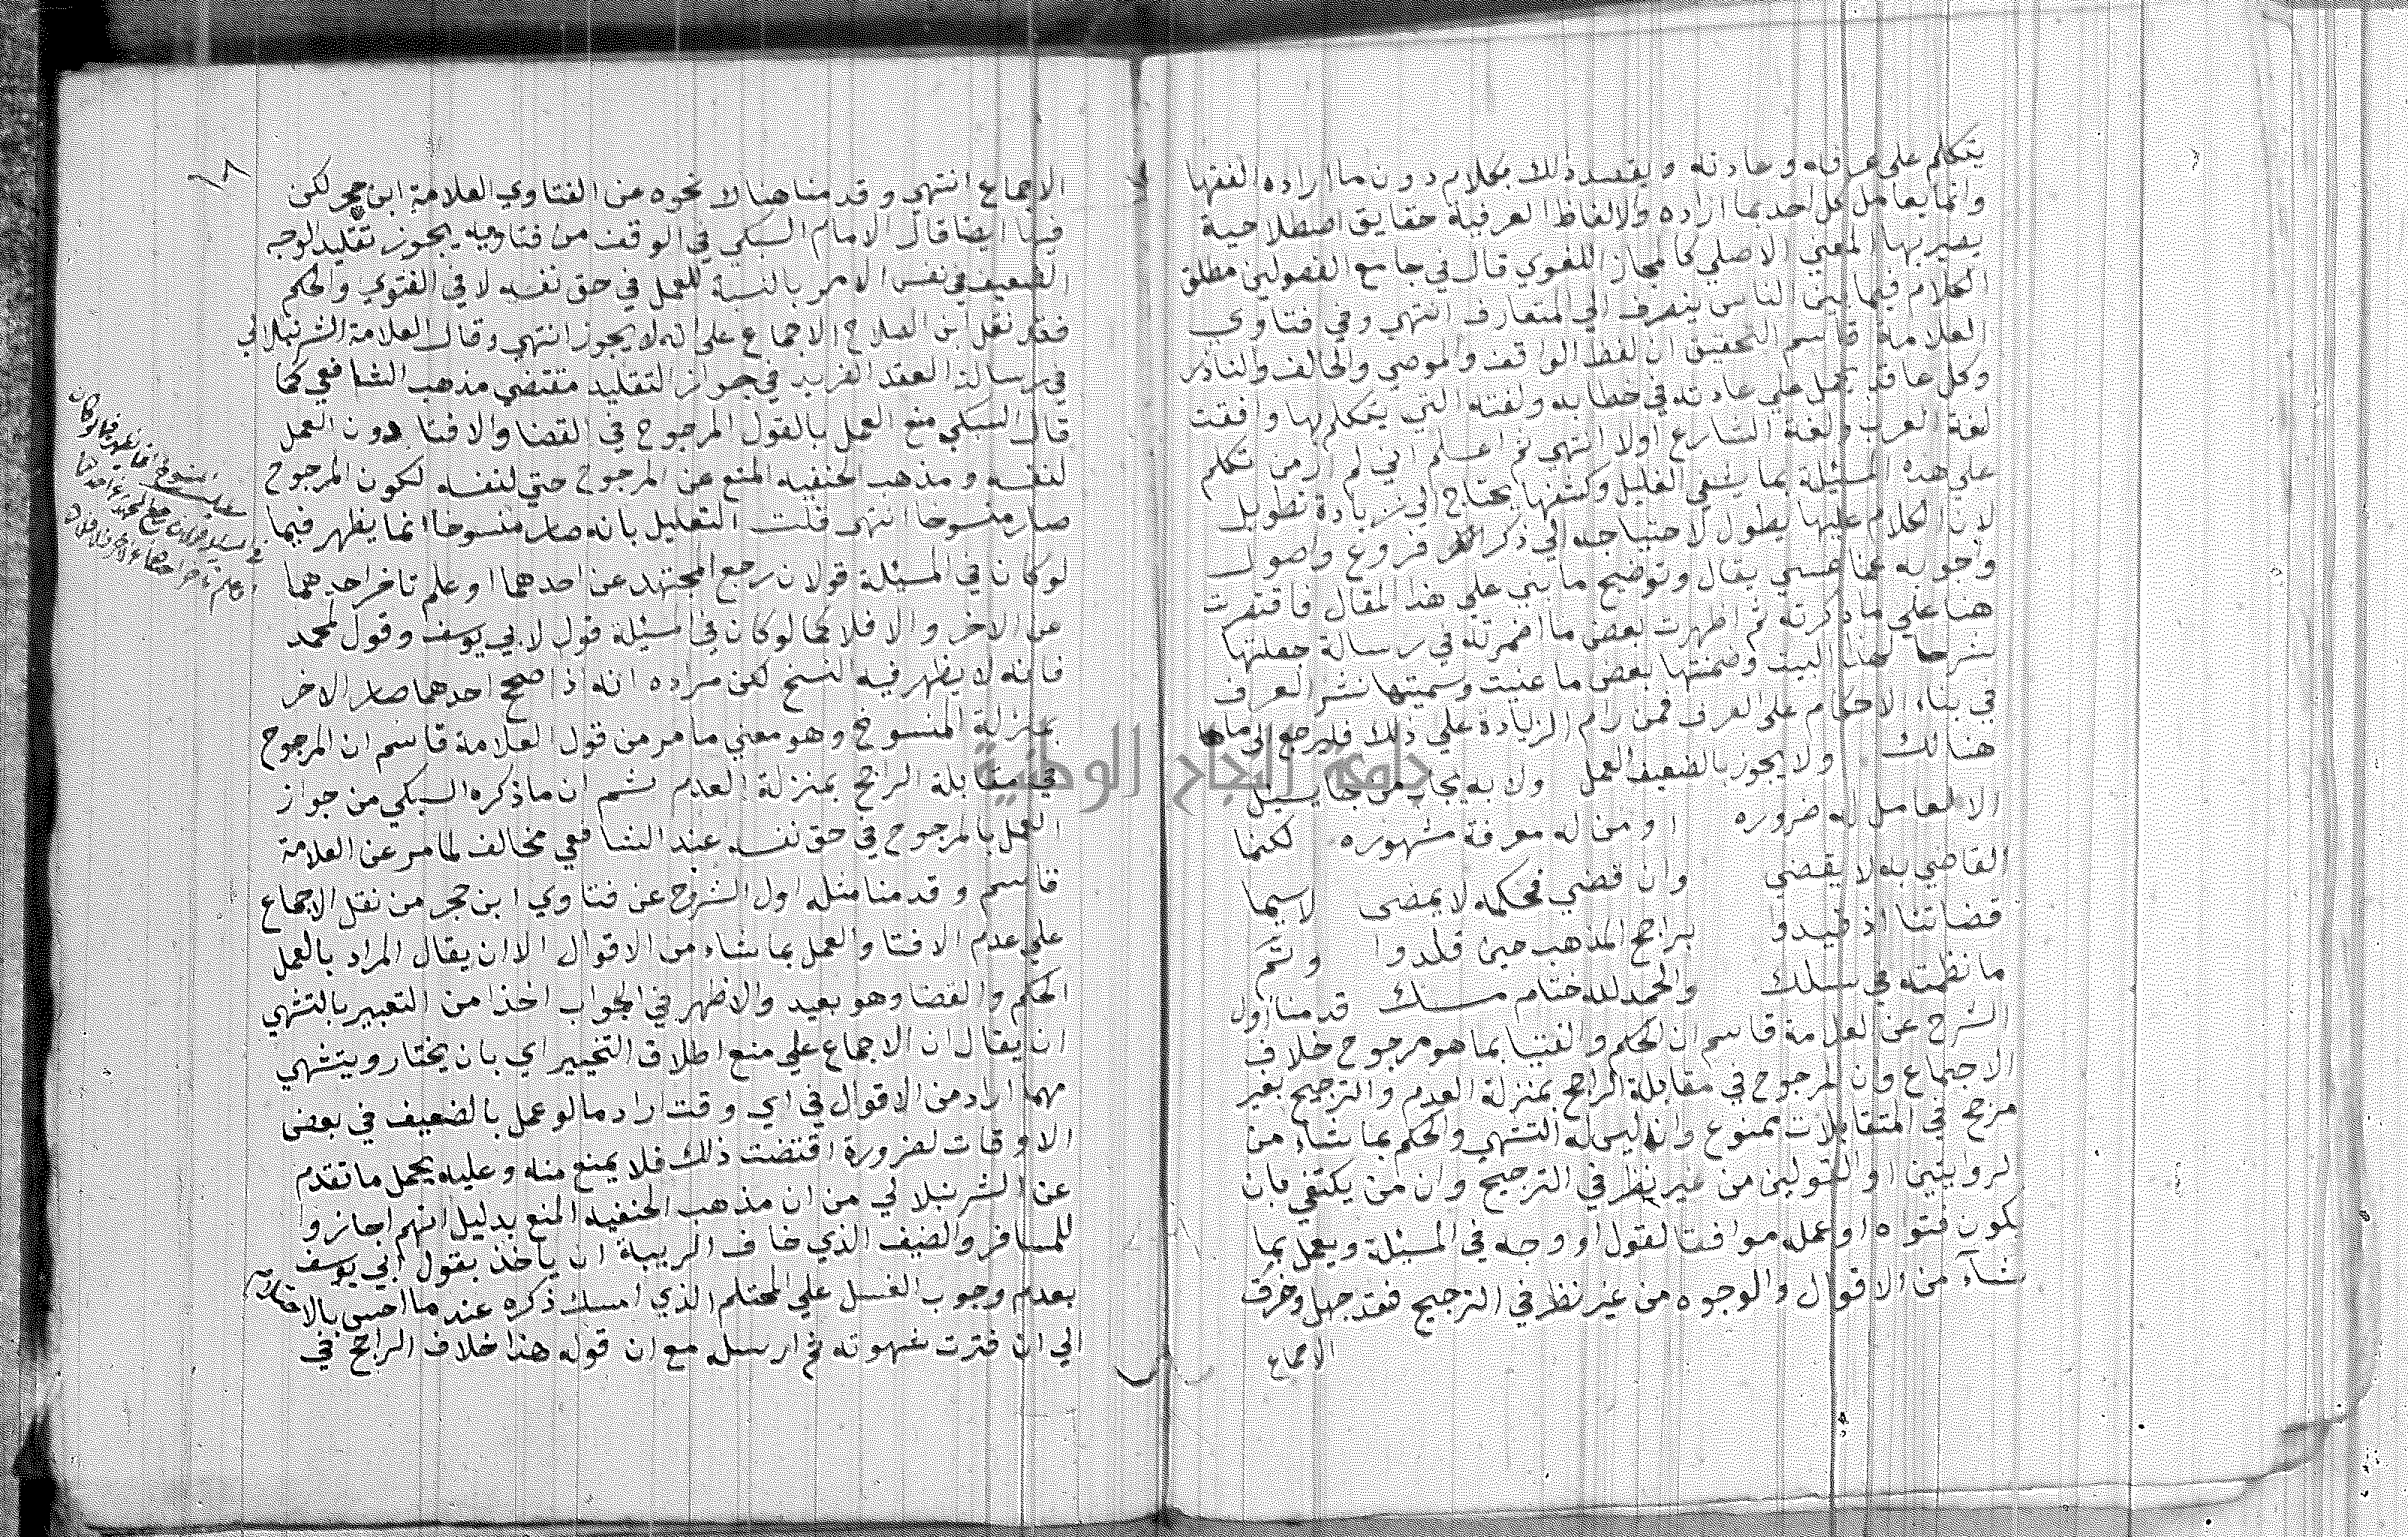 يتكلم على عرفه وعادته ويقصد ذلك بكلامه دون ما اراده الفقها
وانما يعامل كل احد بما اراده والالفاظ العرفية حقايق اصطلاحية
يصير بها المعني الاصلي كالمجاز اللغوي قال في جامع الفصولين مطلق
الكلام فيما بين الناس ينصرف الي المتعارف انتهي وفي فتاوي
العلامة قاسم التحقيق ان لفظ الواقف والموصي والحالف والناذر
وكل عاقد يحمل علي عادته في خطابه ولغته التي يتكلم بها وافقت
لغة العرب ولغة الشارع اولا انتهي ثم اعلم اني لم ار من تكلم
علي هذه المسئلة بما يشفي الغليل وكشفها يحتاج الي زيادة تطويل
لان الكلام عليها يطول لاحتياجه الي ذكر فروع واصول
واجوبه عما عسي يقال وتوضيح ما بني علي هذا المقال فاقتصرت
هنا علي ما ذكرته ثم اظهرت بعض ما اضمرته في رسالة جعلتها
شرحا لهذا البيت وضمنتها بعض ما عنيت وسميتها نشر العرف
في بناء الاحكام على العرف فمن رام الزيادة علي ذلك فليرجع الى ما
هنالك ولا يجوز بالضعيف العمل ولا به يجاب من جا يسئل
الا لعامل له ضروره او من له معرفة مشهوره لكنما
القاضي به لا يقضي وان قضي فحكمه لا يمضى لاسيما
قضاتنا اذ قيدوا براجح المذهب حين قلدوا وتم
ما نظمته في سلك والحمد لله ختام مسك قدمنا اول
الشرح عن العلامة قاسم ان الحكم والفتيا بما هو مرجوح خلاف
الاجماع وان المرجوح في مقابلة الراجح بمنزلة العدم والترجيح بغير
مرجح في المتقابلات ممنوع وانه ليس له التشهي والحكم بما شاء من
الروايتين او القولين من غير نظر في الترجيح وان من يكتفي بان
يكون فتواه او عمله موافقا لقول او وجه في المسئلة ويعمل بما
شآء من الاقوال والوجوه من غير نظر في الترجيح فقد جهل وخرق
الاجماع
٦٨
الاجماع انتهي وقدمنا هنالا نحوه عن الفتاوي العلامة ابن حجر لكن
فيها ايضا قال الامام السبكي في الوقف من فتاويه يجوز تقليد الوجه
الضعيف في نفس الامر بالنسبة للعمل في حق نفسه لا في الفتوي والحكم
فقد نقل ابن الصلاح الاجماع على انه لا يجوز انتهي وقال العلامة الشرنبلالي
في رسالة العقد الفريد في جواز التقليد مقتضي مذهب الشافعي كما
قال السبكي منع العمل بالقول المرجوح في القضا والافتا دون العمل
لنفسه ومذهب الحنفيه المنع عن المرجوح حتي لنفسه لكون المرجوح
صار منسوخا انتهى قلت التعليل بانه صار منسوخا انما يظهر فيما
لو كان في المسئلة قولان رجع المجتهد عن احدهما او علم تاخر احدهما
عن الاخر والا فلا كما لو كان في المسئلة قول لابي يوسف وقول لمحمد
فانه لا يظهر فيه النسخ لكن مراده انه اذا صحح احدهما صار الاخر
بمنزلة المنسوخ وهو معني ما مر من قول العلامة قاسم ان المرجوح
في مقابلة الراجح بمنزلة العدم لشم ان ما ذكره السبكي من جواز
العمل بالمرجوح في حق نفسه عند الشافعي مخالف لما مر عن العلامة
قاسم وقدمنا مثله اول الشرح عن فتاوي ابن حجر من نقل الاجماع
علي عدم الافتا والعمل بما شاء من الاقوال الا ان يقال المراد بالعمل
الحكم والقضا وهو بعيد والاظهر في الجواب اخذا من التعبير بالتشهي
ان يقال ان الاجماع علي منع اطلاق التخيير اي بان يختار ويتشهي
مهما اراد من الاقوال في اي وقت اراد ما لو عمل بالضعيف في بعض
الاوقات لضرورة اقتضت ذلك فلا يمنع منه وعليه يحمل ما تقدم
عن الشرنبلالي من ان مذهب الحنفيه المنع بدليل انهم اجازوا
للمسافر والضيف الذي خاف الريبة ان ياخذ بقول ابي يوسف
بعدم وجوب الغسل علي المحتلم الذي امسك ذكره عند ما احس بالاحتلام
الي ان فترت شهوته ثم ارسله مع ان قوله هذا خلاف الراجح في
جامعة النجاح الوطنية